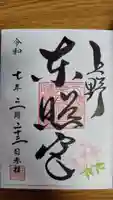 上野
東照宮
令和七年二月二十三日参拝